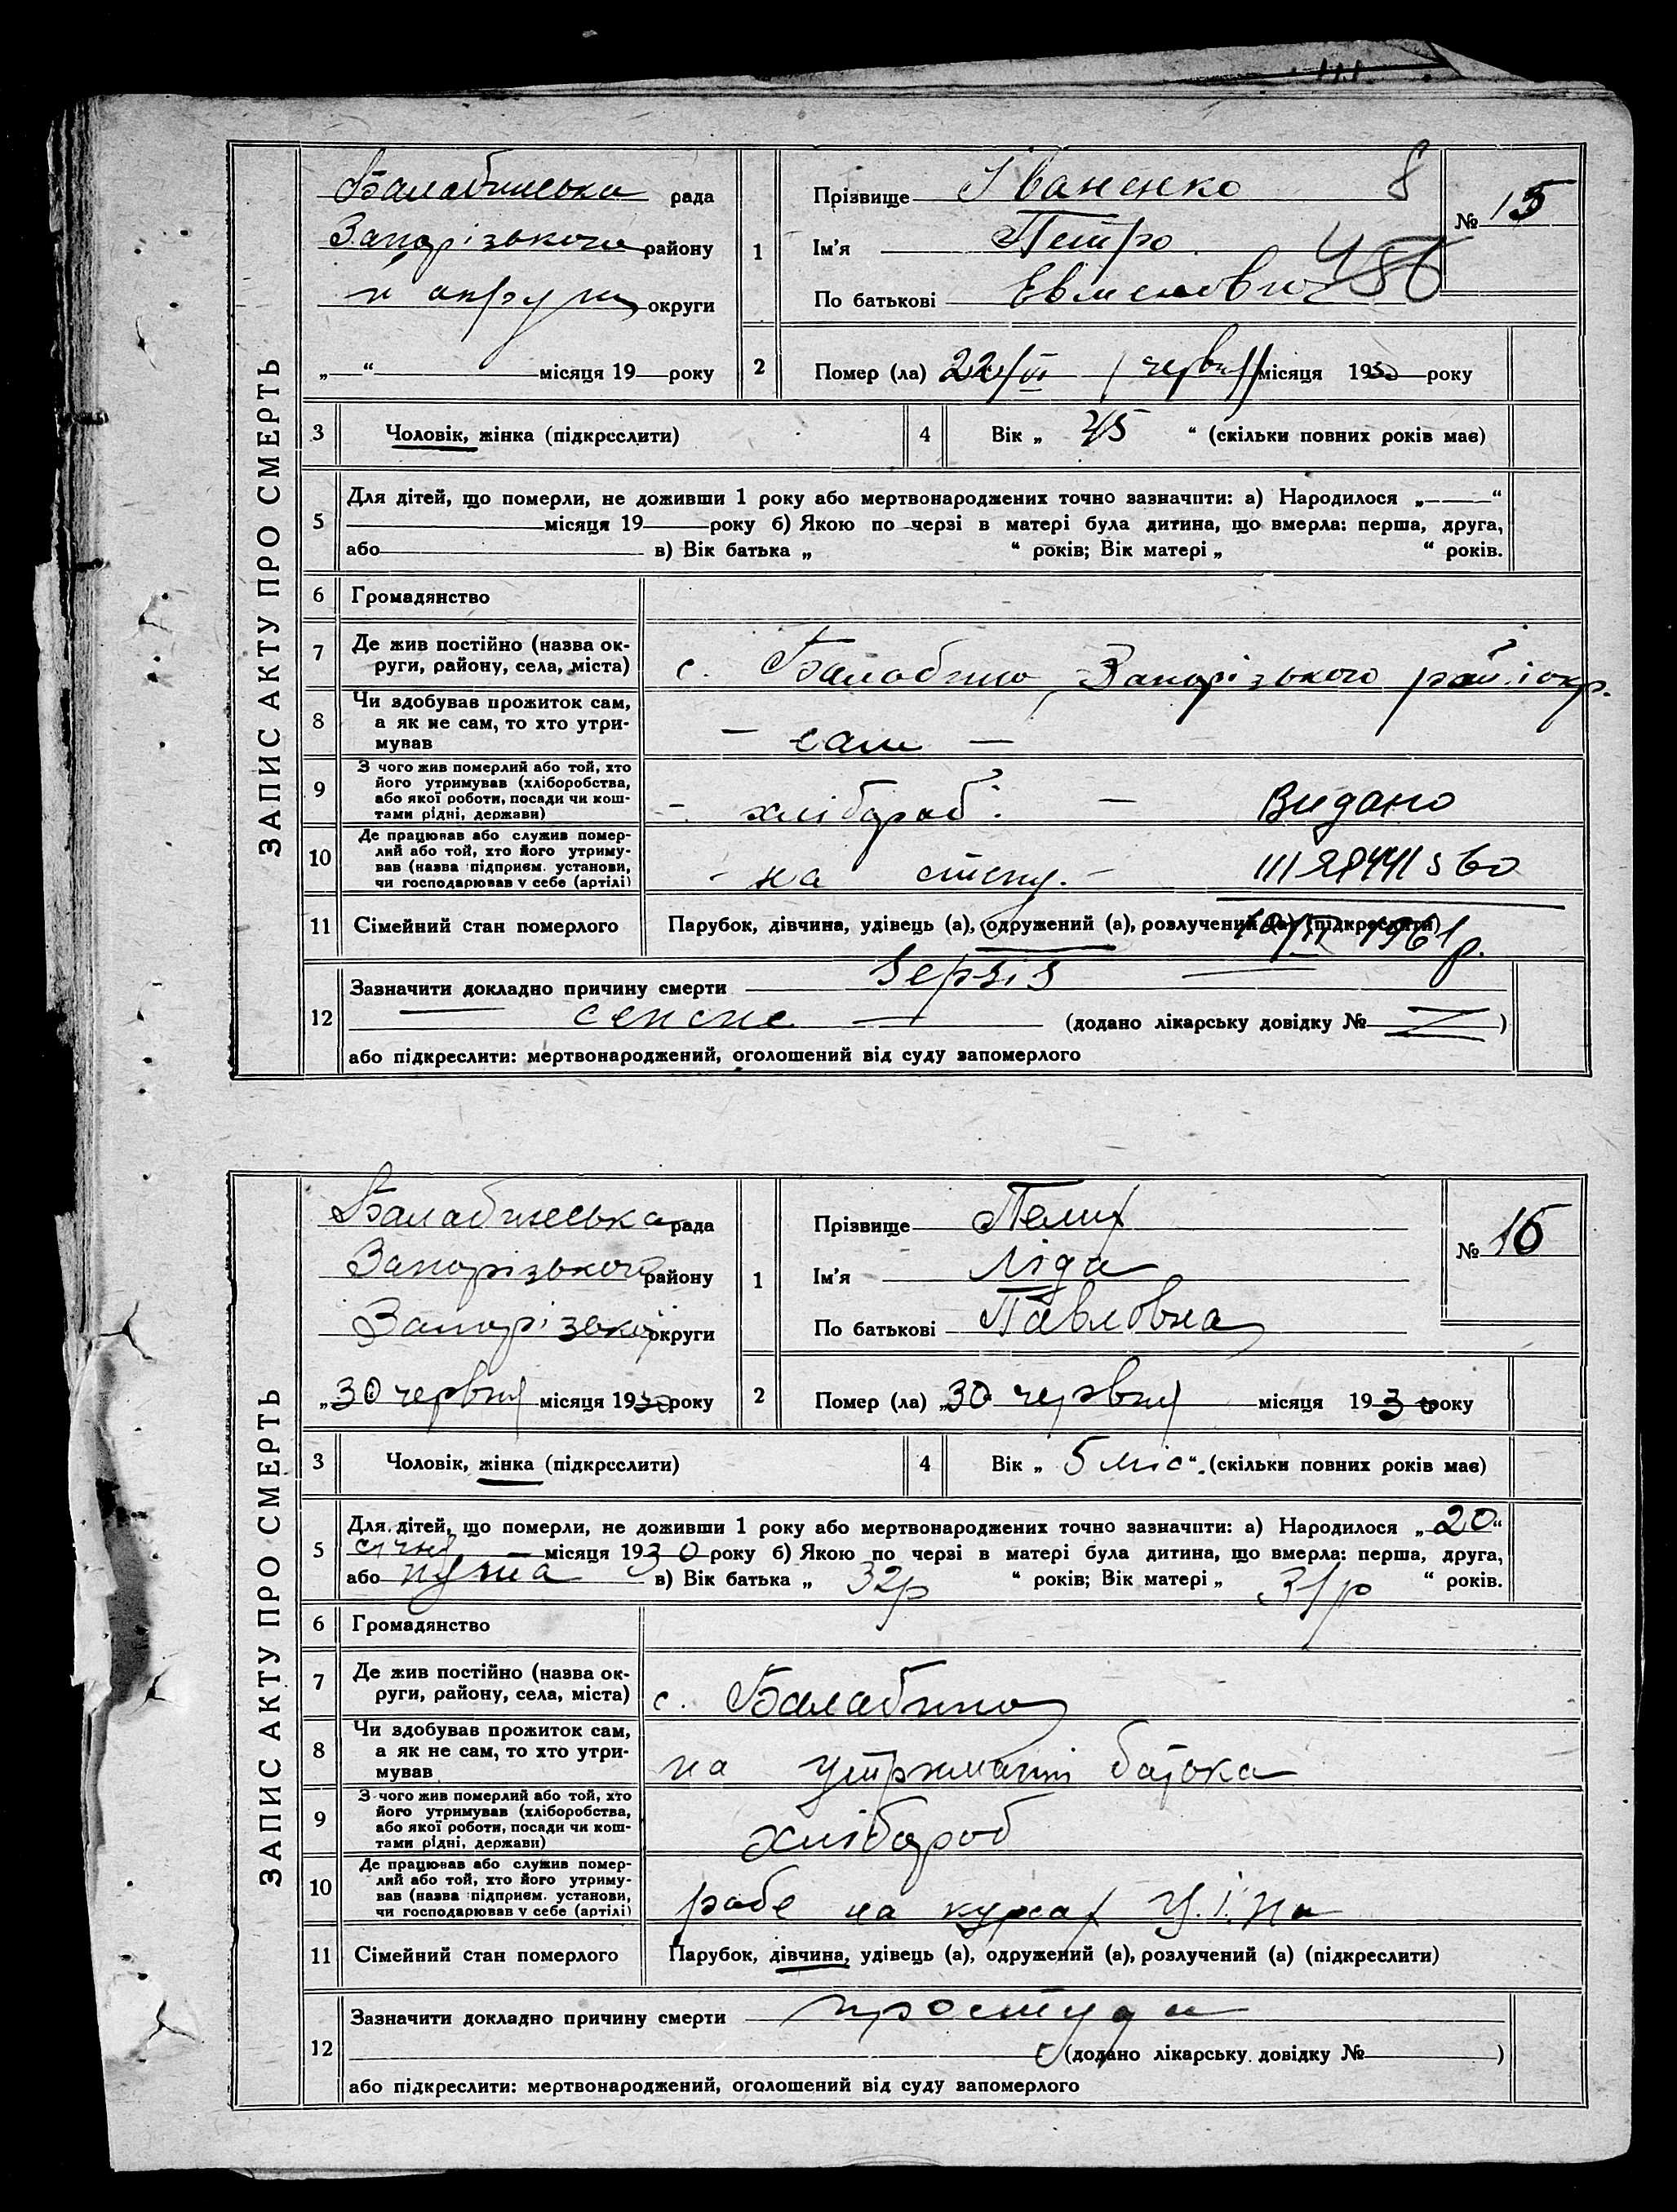 ЗАПИС АКТУ ПРО СМЕРТЬ
Балабинська рада
Запорізького району
й округи округи
„ “ місяця 19 року
1
Прізвище Іваненко 8
Ім'я Петро
По батькові Евменович 486
№ 15
2 Помер (ла) 22/VI (червня) місяця 1930 року
3 Чоловік, жінка (підкреслити)
4 Вік „ 45 “ (скільки повних років має)
5 Для дітей, що померли, не доживши 1 року або мертвонароджених точно зазначити: а) Народилося „ “
місяця 19 року б) Якою по черзі в матері була дитина, що вмерла: перша, друга,
або в) Вік батька „ “ років; Вік матері „ “ років.
6 Громадянство
7 Де жив постійно (назва ок-
руги, району, села, міста)
с. Балабино Запорізького рай. і окр.
8 Чи здобував прожиток сам,
а як не сам, то хто утри-
мував
— сам —
9 З чого жив померлий або той, хто
його утримував (хліборобства,
або якої роботи, посади чи кош-
тами рідні, держави)
- хлібороб. — Видано
10 Де працював або служив помер-
лий або той, хто його утриму-
вав (назва підприєм. установи,
чи господарював у себе (артілі)
- на степу. -
11 Сімейний стан померлого
Парубок, дівчина, удівець (а), одружений (а), розлучений (а) (підкреслити)
1961 р.
12 Зазначити докладно причину смерти Sepsis —
— сепсис — (додано лікарську довідку № )
або підкреслити: мертвонароджений, оголошений від суду запомерлого
ЗАПИС АКТУ ПРО СМЕРТЬ
Балабинська рада
Запорізького району
Запорізької округи
„30 червня місяця 1930 року
1
Прізвище Пелих
Ім'я Ліда
По батькові Павловна
№ 16
2 Помер (ла) „30“ червня місяця 1930 року
3 Чоловік, жінка (підкреслити)
4 Вік „ 5 міс “ (скільки повних років має)
5 Для дітей, що померли, не доживши 1 року або мертвонароджених точно зазначити: а) Народилося „20“
січня місяця 1930 року б) Якою по черзі в матері була дитина, що вмерла: перша, друга,
або в) Вік батька „ 32р “ років; Вік матері „ 31р “ років.
6 Громадянство
7 Де жив постійно (назва ок-
руги, району, села, міста)
с. Балабино
8 Чи здобував прожиток сам,
а як не сам, то хто утри-
мував
на утриманні батька
9 З чого жив померлий або той, хто
його утримував (хліборобства,
або якої роботи, посади чи кош-
тами рідні, держави)
хлібороб
10 Де працював або служив помер-
лий або той, хто його утриму-
вав (назва підприєм. установи,
чи господарював у себе (артілі)
робе на курсах
11 Сімейний стан померлого
Парубок, дівчина, удівець (а), одружений (а), розлучений (а) (підкреслити)
12 Зазначити докладно причину смерти простуда
(додано лікарську довідку № )
або підкреслити: мертвонароджений, оголошений від суду запомерлого